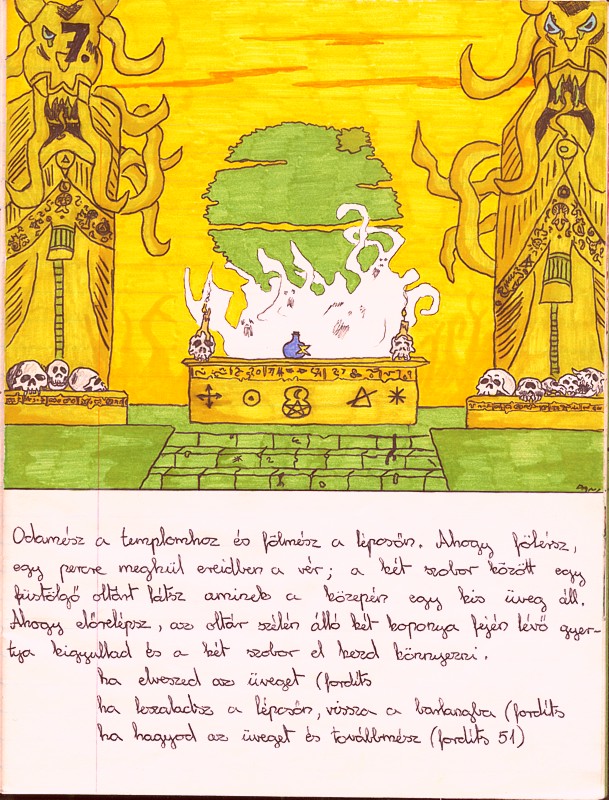 7.
Odamész a templomhoz és fölmész a lépcsőn. Ahogy fölérsz,
egy percre meghűl ereidben a vér; a két szobor között egy
füstölgő oltárt látsz aminek a közepén egy kis üveg áll.
Ahogy előrelépsz, az oltár szélén álló két koponya fején lévő gyer-
tya kigyullad és a két szobor el kezd könnyezni.
ha elveszed az üveget (fordíts
ha leszaladsz a lépcsőn, vissza a barlangba (fordíts
ha hagyod az üveget és továbbmész (fordíts 51)